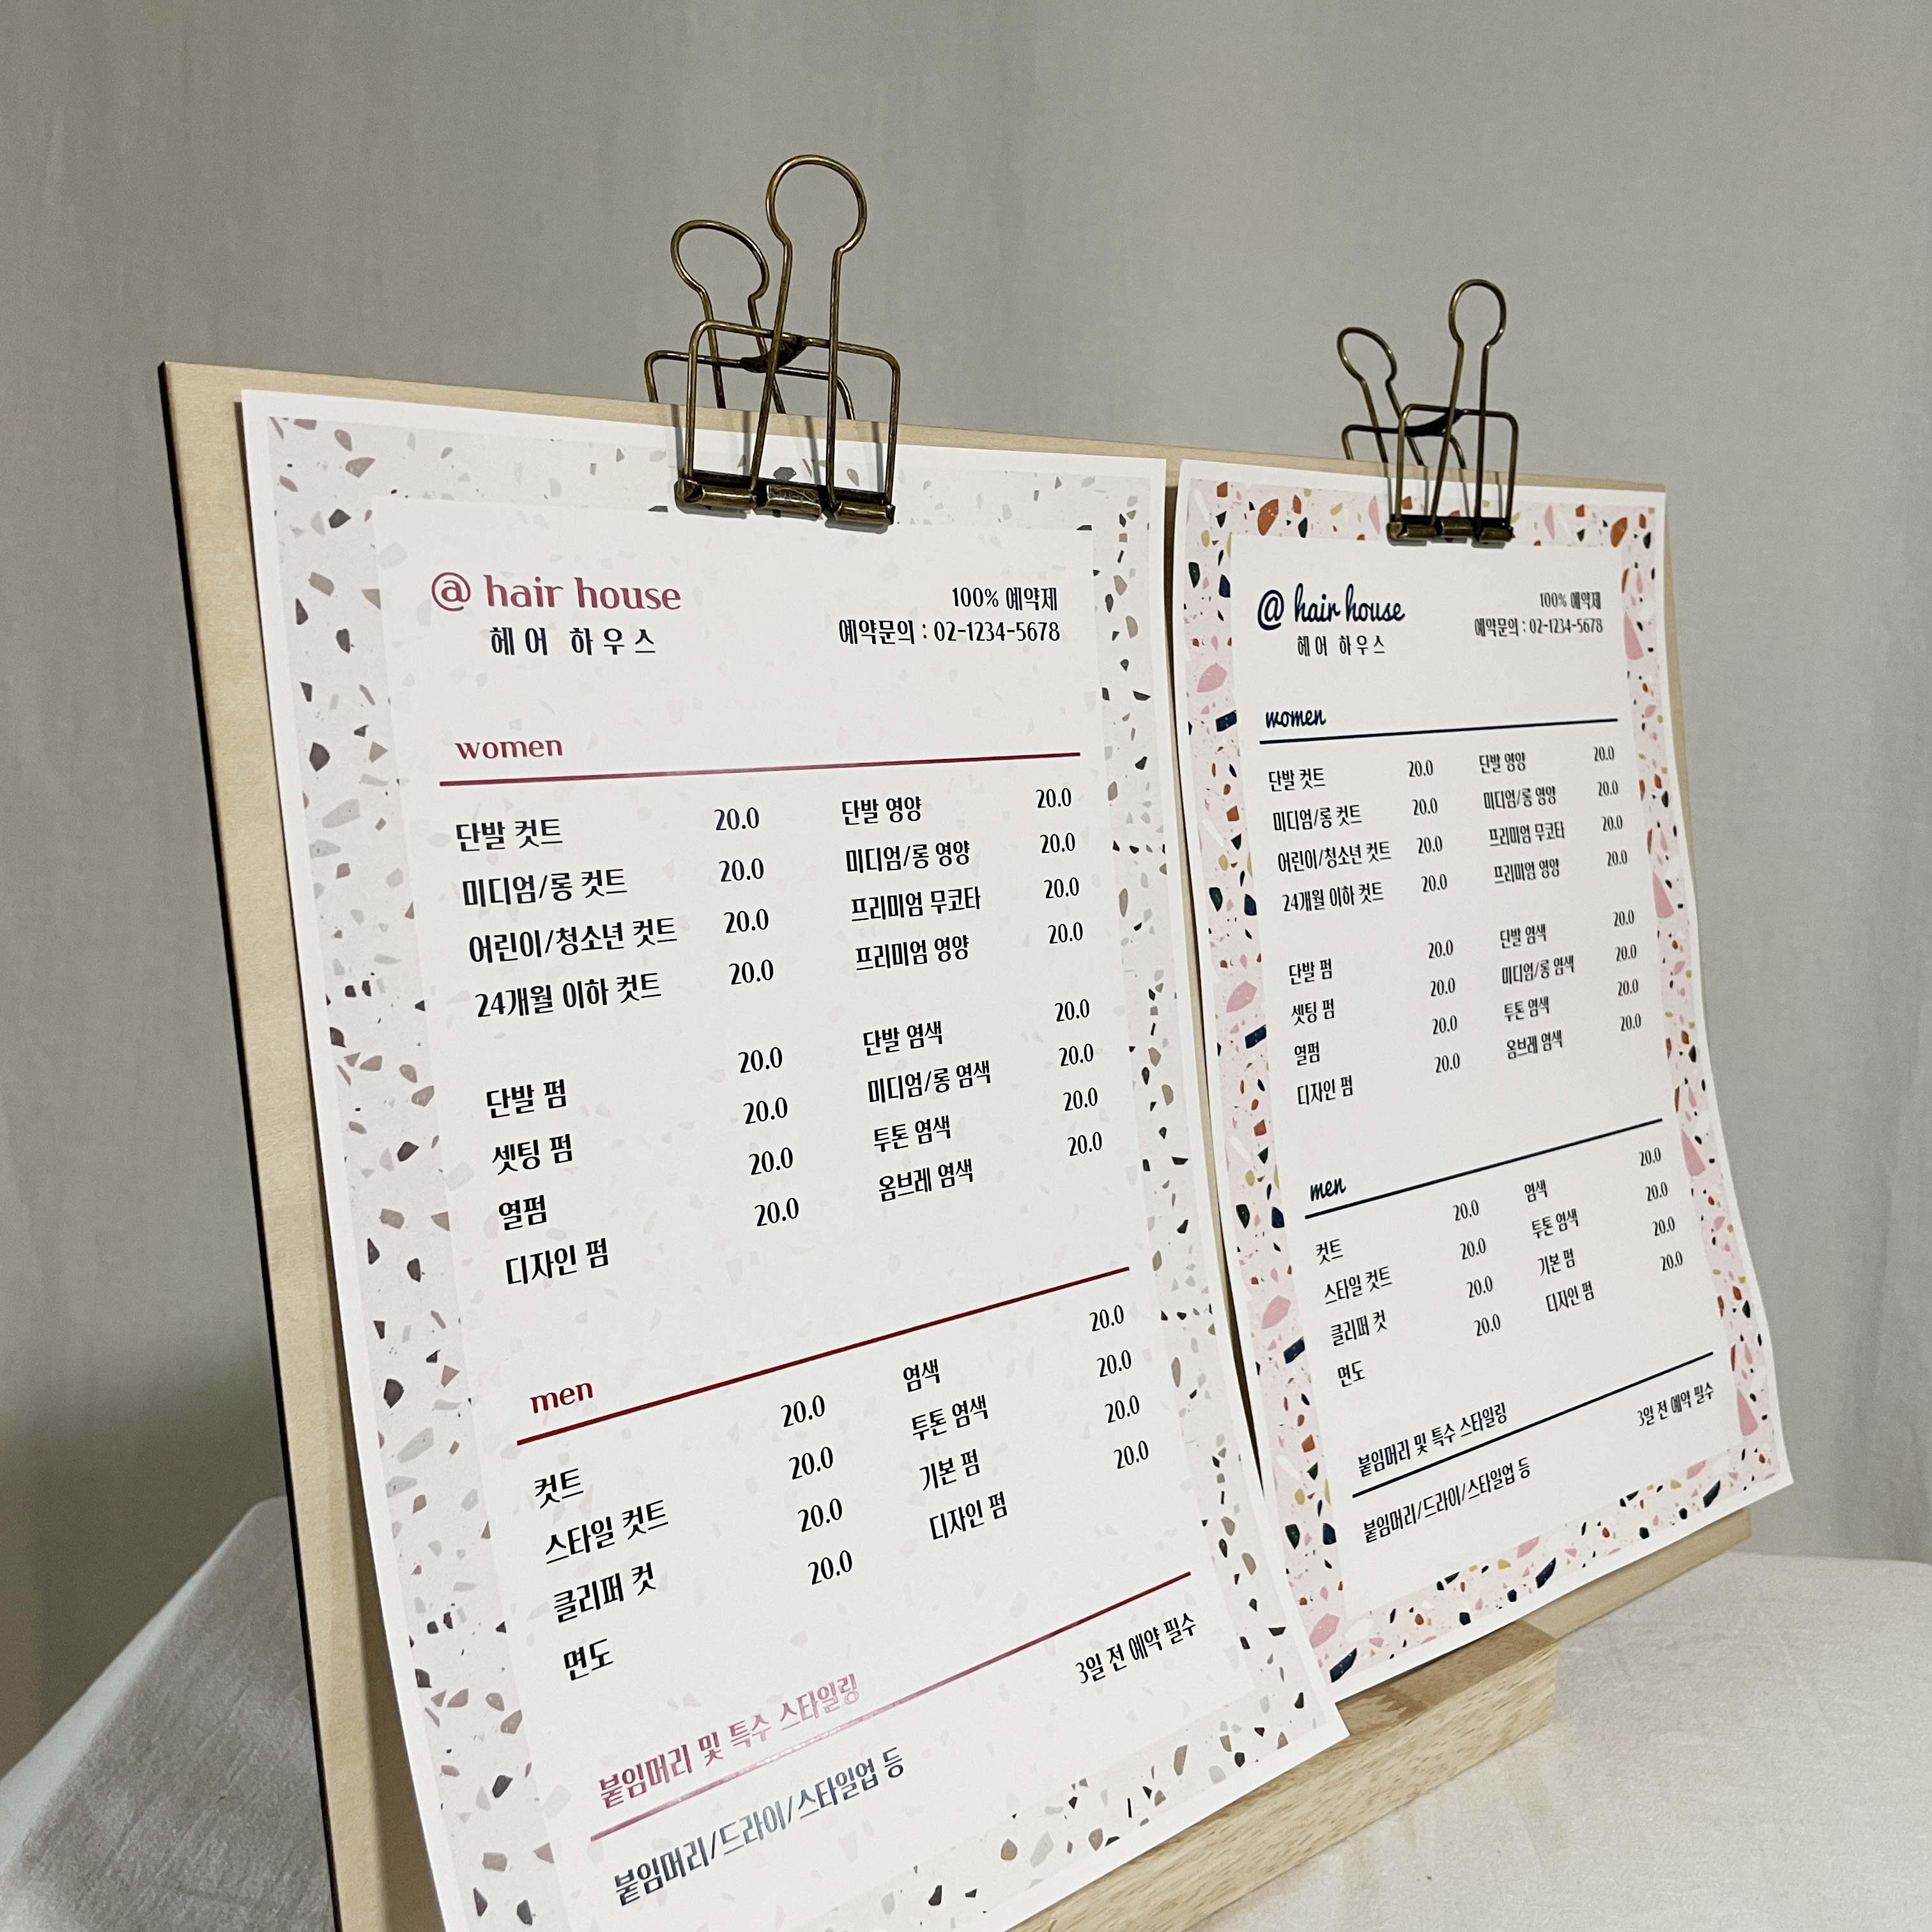 @ hair house
헤어 하우스
100% 예약제
예약문의 : 02-1234-5678
women
단발 컷트 20.0 단발 영양 20.0
미디엄/롱 컷트 20.0 미디엄/롱 영양 20.0
어린이/청소년 컷트 20.0 프리미엄 무코타 20.0
24개월 이하 컷트 20.0 프리미엄 영양 20.0
단발 펌 20.0 단발 염색 20.0
셋팅 펌 20.0 미디엄/롱 염색 20.0
열펌 20.0 투톤 염색 20.0
디자인 펌 20.0 옴브레 염색 20.0
men
컷트 20.0 염색 20.0
스타일 컷트 20.0 투톤 염색 20.0
클리퍼 컷 20.0 기본 펌 20.0
면도 20.0 디자인 펌 20.0
붙임머리 및 특수 스타일링
붙임머리/드라이/스타일업 등 3일 전 예약 필수
@ hair house
헤어 하우스
100% 예약제
예약문의 : 02-1234-5678
women
단발 컷트 20.0 단발 영양 20.0
미디엄/롱 컷트 20.0 미디엄/롱 영양 20.0
어린이/청소년 컷트 20.0 프리미엄 무코타 20.0
24개월 이하 컷트 20.0 프리미엄 영양 20.0
단발 펌 20.0 단발 염색 20.0
셋팅 펌 20.0 미디엄/롱 염색 20.0
열펌 20.0 투톤 염색 20.0
디자인 펌 20.0 옴브레 염색 20.0
men
컷트 20.0 염색 20.0
스타일 컷트 20.0 투톤 염색 20.0
클리퍼 컷 20.0 기본 펌 20.0
면도 20.0 디자인 펌 20.0
붙임머리 및 특수 스타일링
붙임머리/드라이/스타일업 등 3일 전 예약 필수